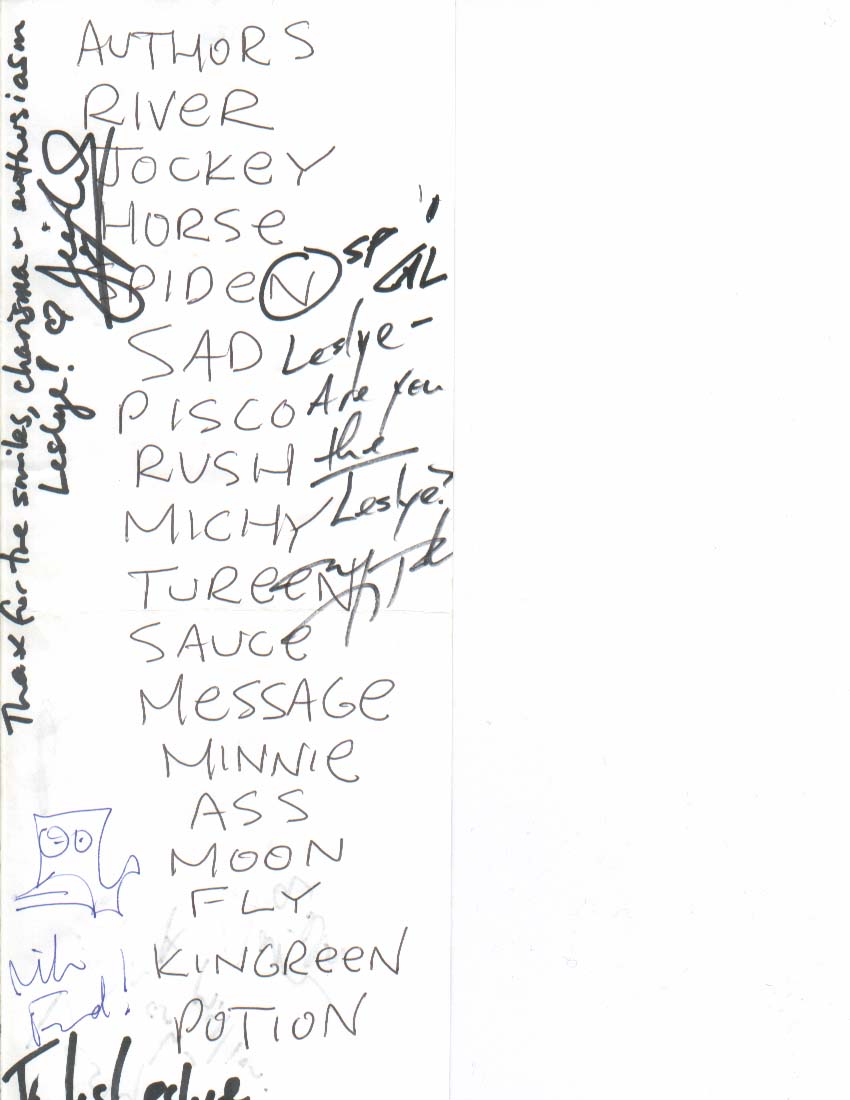 AUTHORS
RIVER
JOCKEY
HORSE
SPIDEN
SP
SAD
PISCO
RUSH
MICHY
TUREEN
SAUCE
MESSAGE
MINNIE
ASS
MOON
FLY
KINGREEN
POTION
Leslye -
Are you
the
Leslye?
Thax for the smiles, charisma + enthusiasm
Leslye!
Leslye